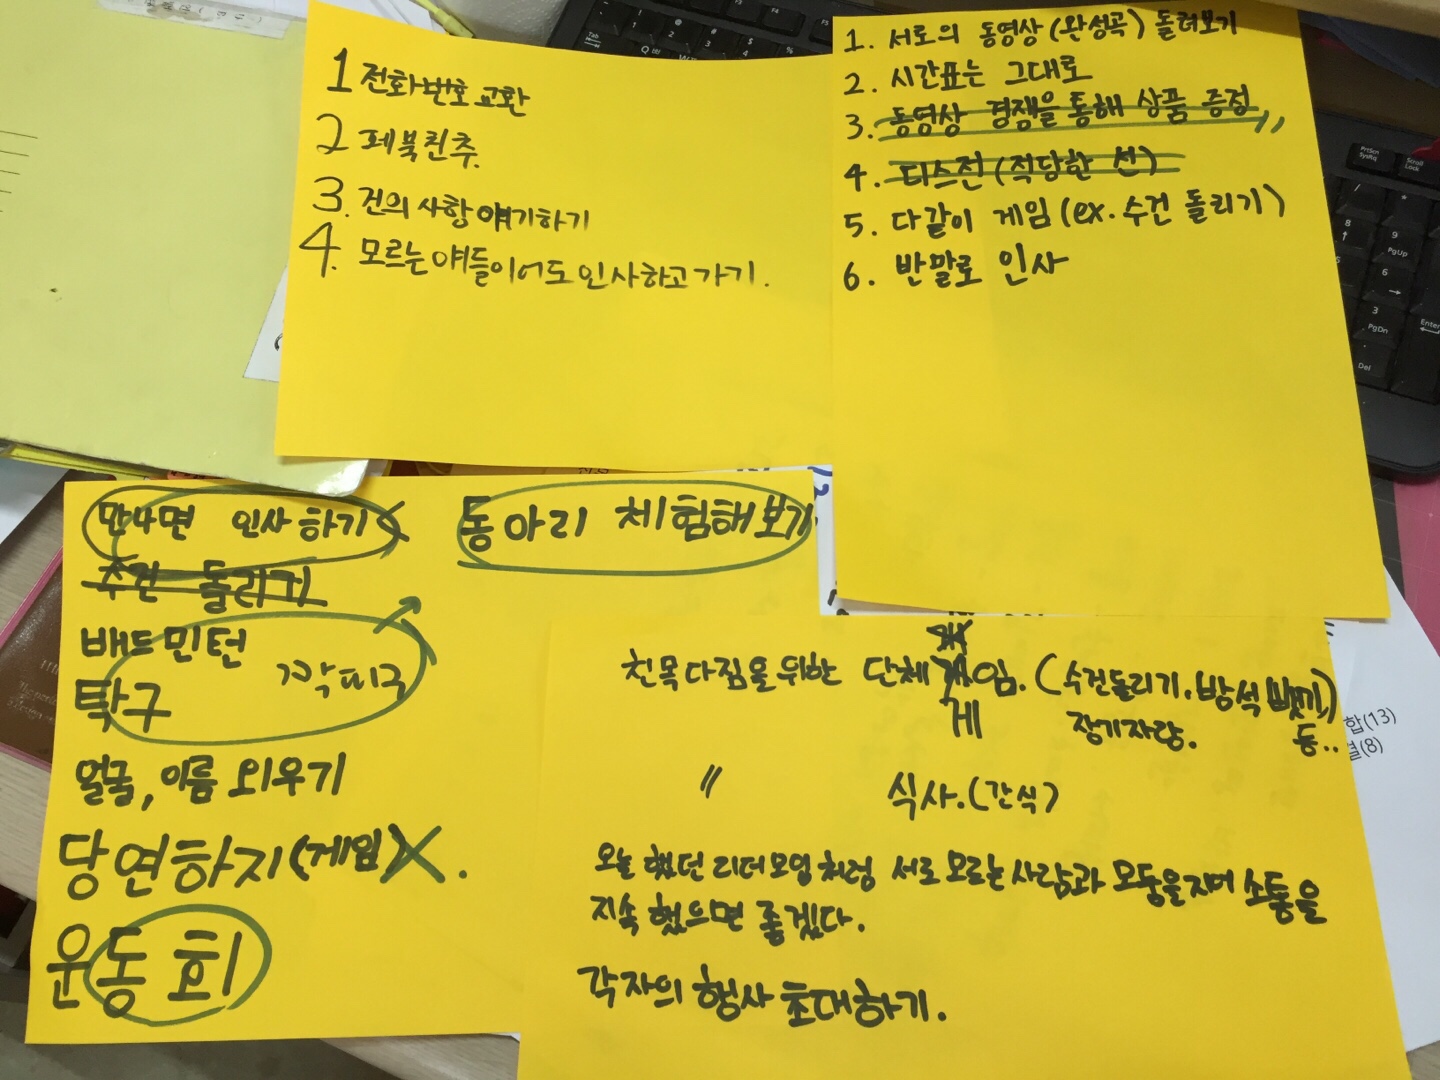 1 전화번호 교환
2 페북친추.
3. 건의 사항 얘기하기
4. 모르는 얘들이어도 인사하고 가기.
1. 서로의 동영상 (완성곡) 돌려보기
2. 시간표는 그대로
3. 동영상 경쟁을 통해 상품 증정
4. 디스전 (적당한 선)
5. 다같이 게임 (ex. 수건 돌리기)
6. 반말로 인사
만나면 인사 하기
동아리 체험해보기
수건 돌리기
배드민턴
탁구
얼굴, 이름 외우기
당연하지 (게임) X.
운동회
친목 다짐을 위한 단체 게임. (수건돌리기, 방석 뺏기,)
장기자랑. 등..
〃 식사. (간식)
오늘 했던 리더모임 처럼 서로 모르는 사람과 모둠을 지어 소통을
지속 했으면 좋겠다.
각자의 행사 초대하기.
합(13)
결(8)
Tab
Q
W
PrtScn
SysRq
Scroll
Lock
PgUp
PgDn
Enter
Del